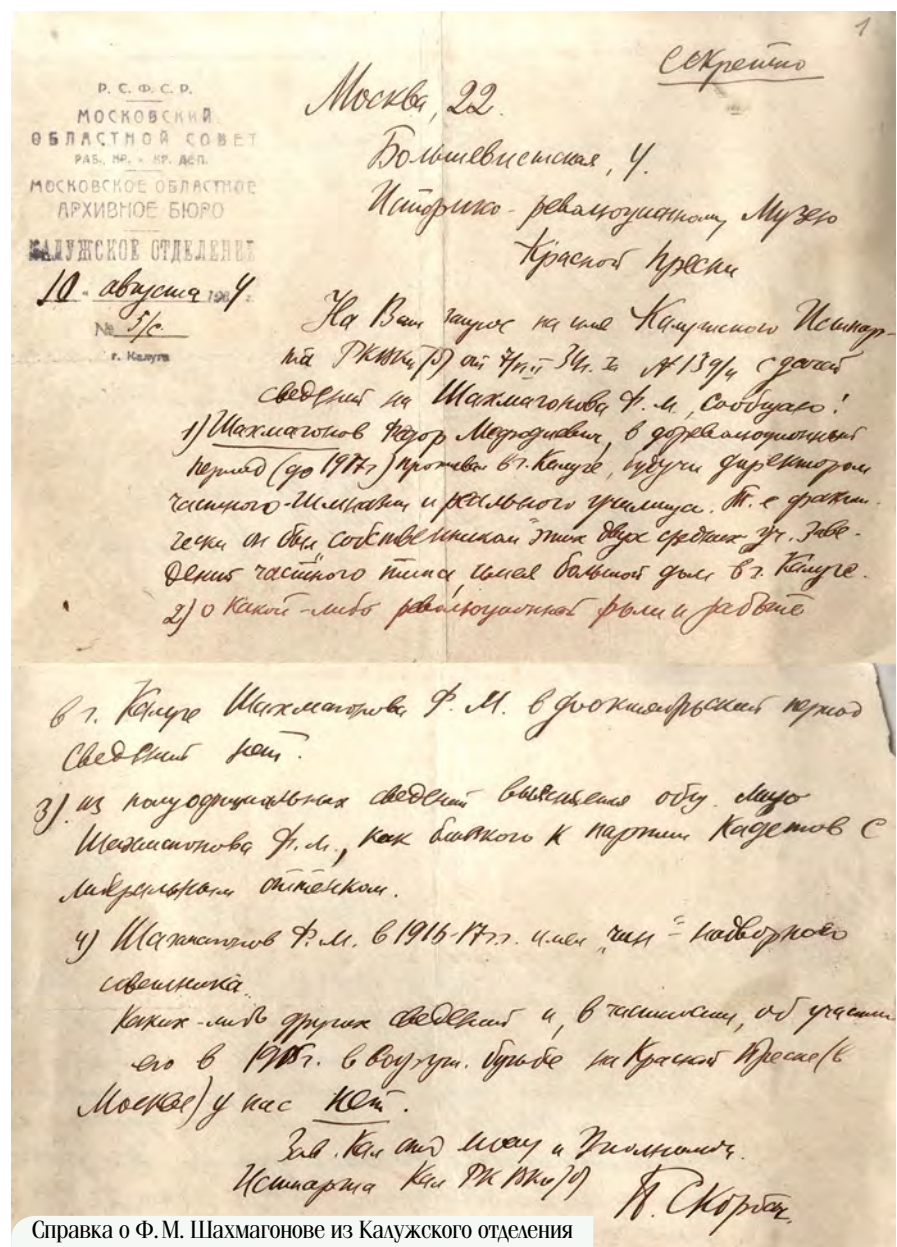 1
Секретно
Р. С. Ф. С. Р.
МОСКОВСКИЙ
ОБЛАСТНОЙ СОВЕТ
РАБ., КР. и КР. ДЕП.
МОСКОВСКОЕ ОБЛАСТНОЕ
АРХИВНОЕ БЮРО
КАЛУЖСКОЕ ОТДЕЛЕНИЕ
10 августа 1934 г.
№ 5/с.
г. Калуга
Москва, 22.
Большевистская, 4.
Историко-революционному Музею
Красной Пресни
На Ваш запрос на имя Калужского Истпар-
та РКВКП(б) от 7/VII 34 г. за № 139/4 с дачей
сведений на Шахмагонова Ф. М., сообщаю:
1) Шахмагонов Федор Мефодиевич, в дореволюционный
период (до 1917 г) проживал в г. Калуге, будучи директором
частного-Гимназии и реального училища. Т. е факти-
чески он был собственником этих двух средних уч. заве-
дений частного типа, имея большой дом в г. Калуге.
2) о какой-либо революционной роли и работе
в г. Калуге Шахмагонова Ф. М. в дооктябрьский период
сведений нет.
3) из полуофициальных сведений выяснено общ. лицо
Шахмагонова Ф. М., как близкого к партии Кадетов с
либеральным оттенком.
4) Шахмагонов Ф. М. в 1916-17 г. имел "чин" - надворного
советника.
Каких-либо других сведений и, в частности, об участии
его в 1905 г. в вооруж. борьбе на Красной Пресне (в
Москве) у нас нет.
Зав. Кал отд МОАУ и Уполномоч.
Истпарта Кал РК ВКП(б)
Справка о Ф. М. Шахмагонове из Калужского отделения